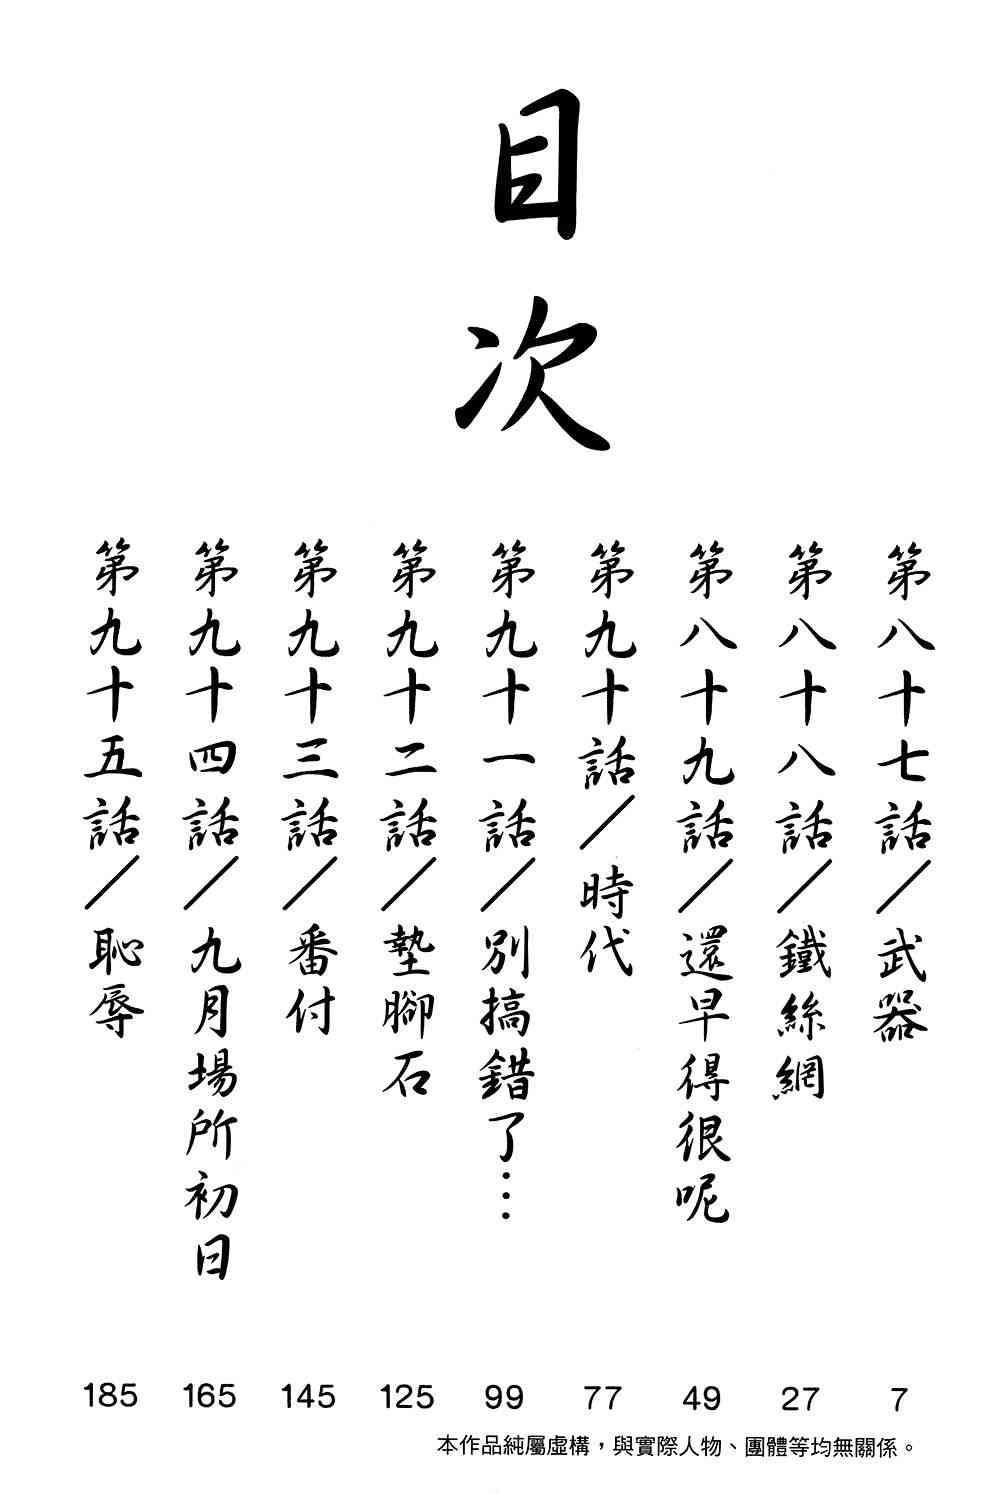 目次
第八十七話／武器 7
第八十八話／鐵絲網 27
第八十九話／還早得很呢 49
第九十話／時代 77
第九十一話／別搞錯了… 99
第九十二話／墊腳石 125
第九十三話／番付 145
第九十四話／九月場所初日 165
第九十五話／恥辱 185
本作品純屬虛構，與實際人物、團體等均無關係。